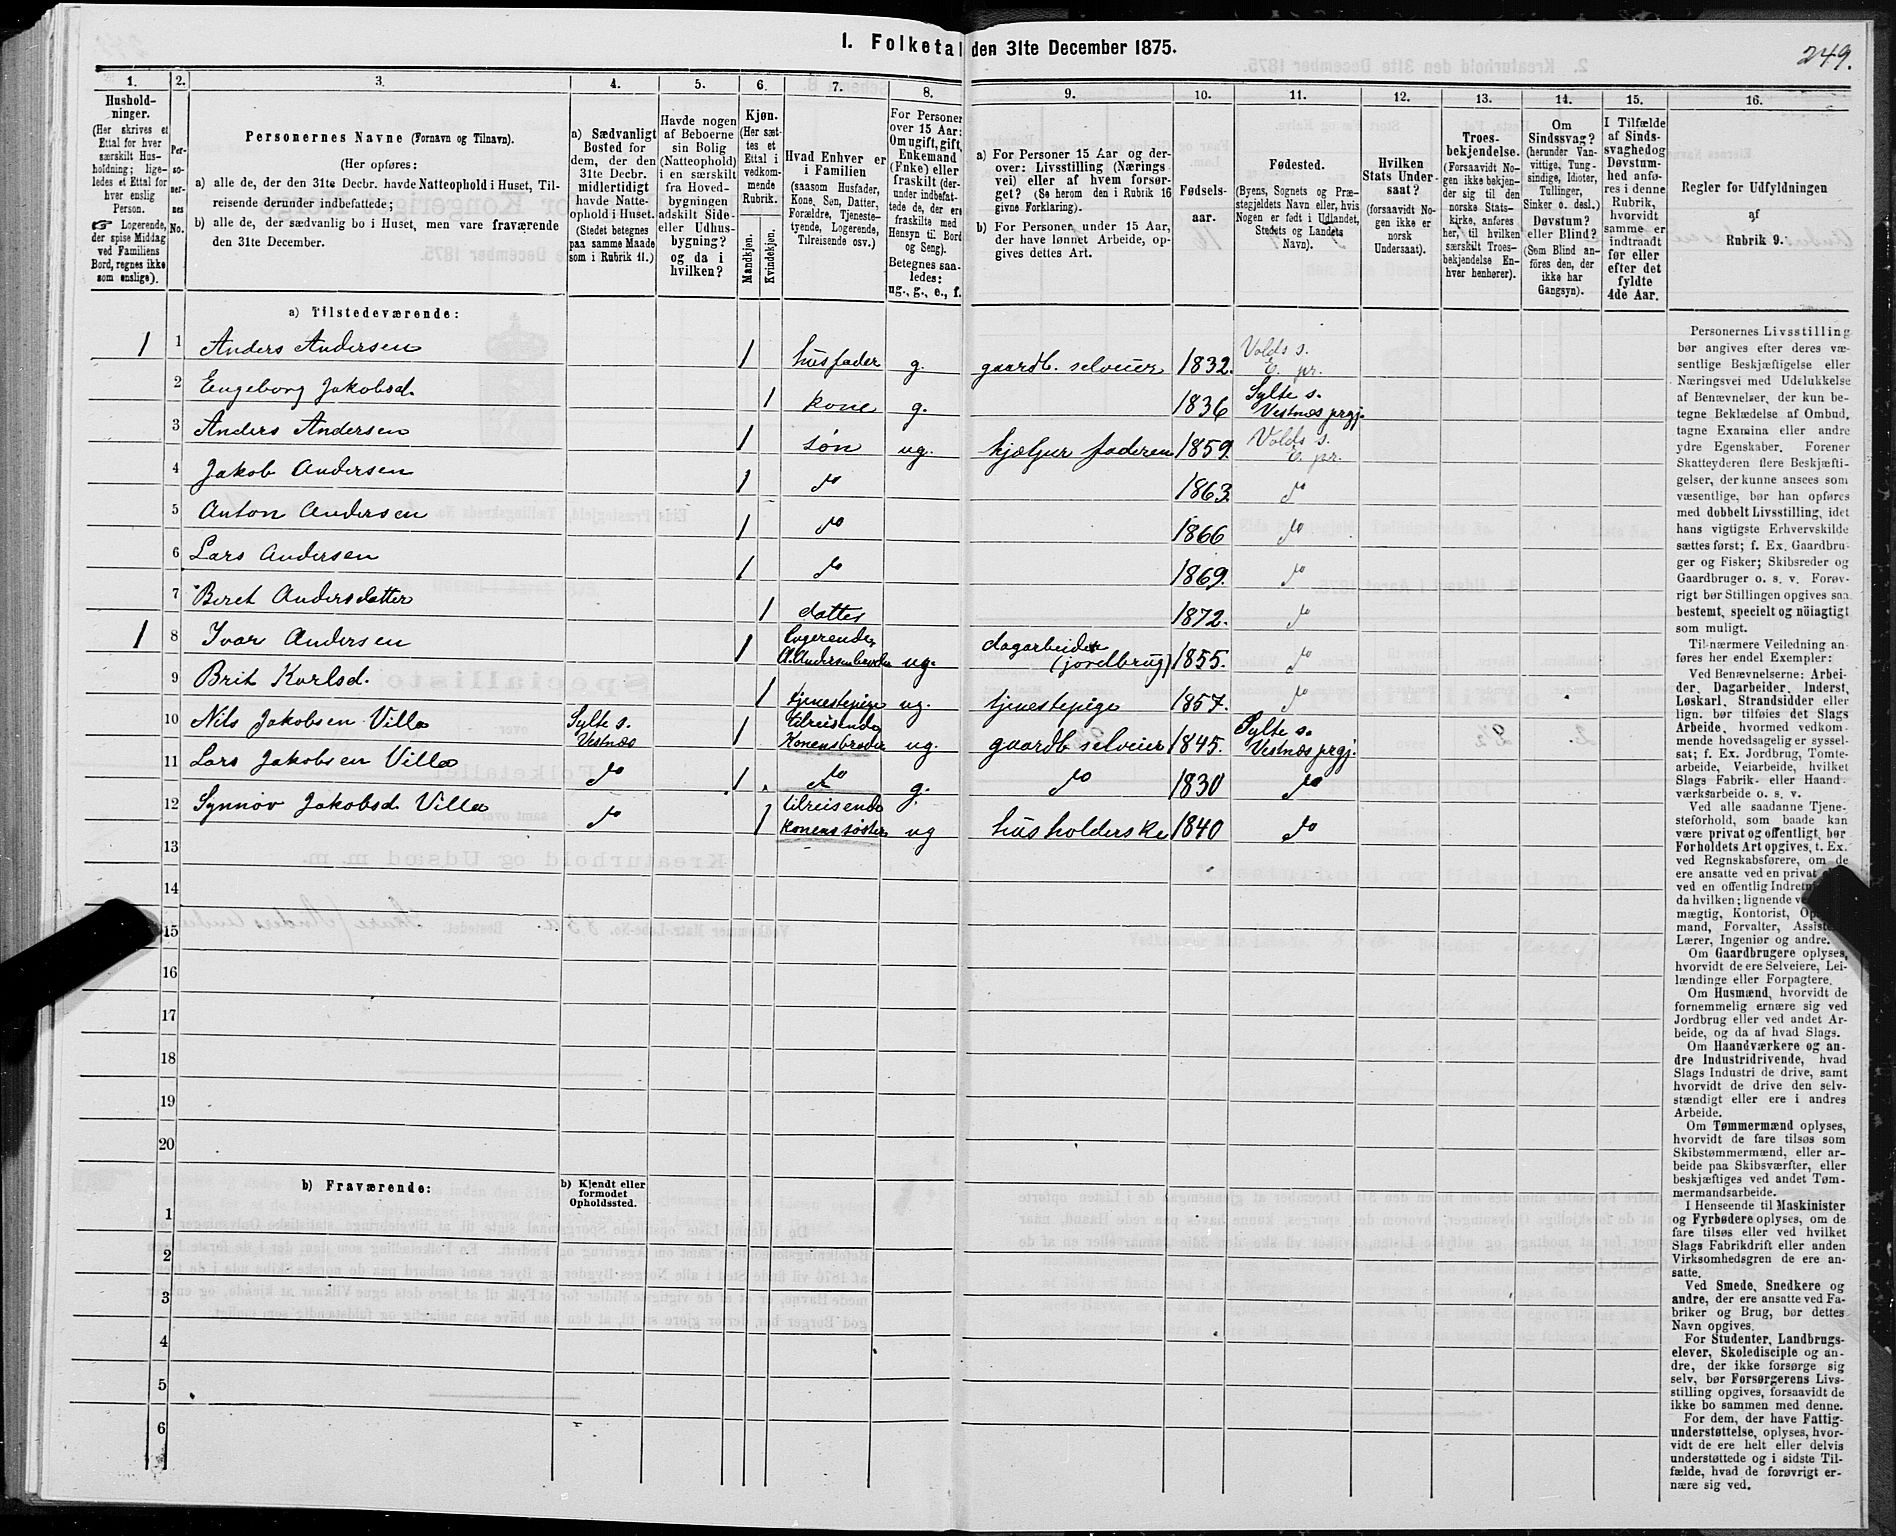 I. Folketal den 31te December 1875.
249.
1.
Hushold-
ninger.
(Her skrives et
Ettal for hver
særskilt Hus-
holdning; lige-
ledes et Ettal for
hver enslig
Person.
☞ Logerende,
der spise Middag
ved Familiens
Bord, regnes ikke
som enslige).
2.
Per-
so-
ner-
nes
No.
3.
Personernes Navne (Fornavn og Tilnavn).
(Her opføres:
a) alle de, der den 31te Decbr. havde Natteophold i Huset, Til-
reisende derunder indbefattede;
b) alle de, der sædvanlig bo i Huset, men vare fraværende
den 31te December.
4.
a) Sædvanligt
Bosted for
dem, der den
31te Decbr.
midlertidigt
havde Natte-
ophold i Huset.
(Stedet betegnes
paa samme Maade
som i Rubrik 11.)
5.
Havde nogen
af Beboerne
sin Bolig
(Natteophold)
i en særskilt
fra Hoved-
bygningen
adskilt Side-
eller Udhus-
bygning?
og da i
hvilken?
6.
Kjøn.
(Her sæt-
tes et
Ettal i
vedkom-
mende
Rubrik.
Mandkjøn.
Kvindekjøn.
7.
Hvad Enhver er
i Familien
(saasom Husfader,
Kone, Søn, Datter,
Forældre, Tjeneste-
tyende, Logerende,
Tilreisende osv.)
8.
For Personer
over 15 Aar:
Om ugift, gift,
Enkemand
(Enke) eller
fraskilt (der-
under indbefat-
tede de, der ere
fraskilte med
Hensyn til Bord
og Seng).
Betegnes saa-
ledes:
ug., g., e., f.
9.
a) For Personer 15 Aar og der-
over: Livsstilling (Nærings-
vei) eller af hvem forsør-
get? (Se herom den i Rubrik 16
givne Forklaring).
b) For Personer under 15 Aar,
der have lønnet Arbeide, op-
gives dettes Art.
10.
Fødsels-
aar.
11.
Fødested.
(Byens, Sognets og Præ-
stegjeldets Navn eller, hvis
Nogen er født i Udlandet,
Stedets og Landets
Navn).
12.
Hvilken
Stats Under-
saat?
(forsaavidt No-
gen ikke er
norsk
Undersaat).
13.
Troes-
bekjendelse.
(Forsaavidt No-
gen ikke bekjen-
der sig til den
norske Stats-
kirke, anføres
her, til hvilken
særskilt Troes-
bekjendelse En-
hver henhører).
14.
Om
Sindssvag?
(herunder Van-
vittige, Tung-
sindige, Idioter,
Tullinger,
Sinker o. desl.)
Døvstum?
eller Blind?
(Som Blind an-
føres den, der
ikke har
Gangsyn).
15.
I Tilfælde
af Sinds-
svaghed og
Døvstum-
hed anfø-
res i denne
Rubrik,
hvorvidt
samme er
indtraadt
før eller
efter det
fyldte
4de Aar.
16.
Regler for Udfyldningen
af
Rubrik 9.
a) Tilstedeværende:
1 1 Anders Andersen 1 husfader g. gaardb. selveier 1832. Volds s. E. pr.
2 Engeborg Jakobsd. 1 kone g. 1836 Sylte s. Vestnæs prgj.
3 Anders Andersen 1 søn ug. hjælper faderen 1859. Volds s. E. pr.
4 Jakob Andersen 1 do 1863. do
5 Anton Andersen 1 do 1866 do
6 Lars Andersen 1 do 1869. do
7 Beret Andersdatter 1 datter 1872. do
1 8 Ivar Andersen 1 Logerende, A. Andersens broder ug. dagarbeider (jordbrug) 1855. do
9 Brit Karlsd. 1 tjenestepige ug. tjenestepige 1857. do
10 Nils Jakobsen Villa Sylte s. Vestnæs 1 tilreisende Konens broder ug. gaardb. selveier 1845. Sylte s. Vestnæs prgj.
11 Lars Jakobsen Villa do 1 do g. do 1830 do
12 Synnøv Jakobsd. Villa do 1 tilreisende konens søster ug husholderske 1840 do
13
14
15
16
17
18
19
20
b) Fraværende:
b) Kjendt eller
formodet
Opholdssted.
1
2
3
4
5
6
Personernes Livsstilling
bør angives efter deres væ-
sentlige Beskjæftigelse eller
Næringsvei med Udelukkelse
af Benævnelser, der kun be-
tegne Beklædelse af Ombud,
tagne Examina eller andre
ydre Egenskaber. Forener
Skatteyderen flere Beskjæfti-
gelser, der kunne ansees som
væsentlige, bør han opføres
med dobbelt Livsstilling, idet
hans vigtigste Erhvervskilde
sættes først; f. Ex. Gaardbru-
ger og Fisker; Skibsreder og
Gaardbruger o. s. v. Forøv-
rigt bør Stillingen opgives saa
bestemt, specielt og nöiagtigt
som muligt.
Til nærmere Veiledning an-
føres her endel Exempler:
Ved Benævnelserne: Arbei-
der, Dagarbeider, Inderst,
Løskarl, Strandsidder eller
lign. bør tilføies det Slags
Arbeide, hvormed vedkom-
mende hovedsagelig er syssel-
sat; f. Ex. Jordbrug, Tomte-
arbeide, Veiarbeide, hvilket
Slags Fabrik- eller Haand-
værksarbeide o. s. v.
Ved alle saadanne Tjene-
steforhold, som baade kan
være privat og offentligt, bør
Forholdets Art opgives, t. Ex.
ved Regnskabsførere, om de
ere ansatte ved en privat
ved en offentlig Indretn
da hvilken; lignende ve
mægtig, Kontorist, Op
mand, Forvalter, Assiste
Lærer, Ingeniør og andre.
Om Gaardbrugere oplyses,
hvorvidt de ere Selveiere, Lei-
lændinge eller Forpagtere.
Om Husmænd, hvorvidt de
fornemmelig ernære sig ved
Jordbrug eller ved andet Ar-
beide, og da af hvad Slags.
Om Haandværkere og an-
dre Industridrivende, hvad
Slags Industri de drive, samt
hvorvidt de drive den selv-
stændigt eller ere i andres
Arbeide.
Om Tømmermænd oplyses,
hvorvidt de fare tilsøs som
Skibstømmermænd, eller ar-
beide paa Skibsværfter, eller
beskjæftiges ved andet Tøm-
mermandsarbeide.
I Henseende til Maskinister
og Fyrbødere oplyses, om de
fare tilsøs eller ved hvilket
Slags Fabrikdrift eller anden
Virksomhedsgren de ere an-
satte.
Ved Smede, Snedkere og
andre, der ere ansatte ved Fa-
briker og Brug, bør dettes
Navn opgives.
For Studenter, Landbrugs-
elever, Skoledisciple og an-
dre, der ikke forsørge sig
selv, bør Forsørgerens Livs-
stilling opgives, forsaavidt de
ikke bo sammen med denne.
For dem, der have Fattig-
understøttelse, oplyses, hvor-
vidt de ere helt eller delvis
understøttede og i sidste Til-
fælde, hvad de forøvrigt er-
nære sig ved.